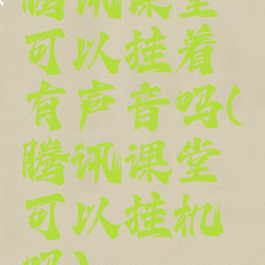 腾讯课堂
可以挂着
有声音吗(
腾讯课堂
可以挂机
吗)